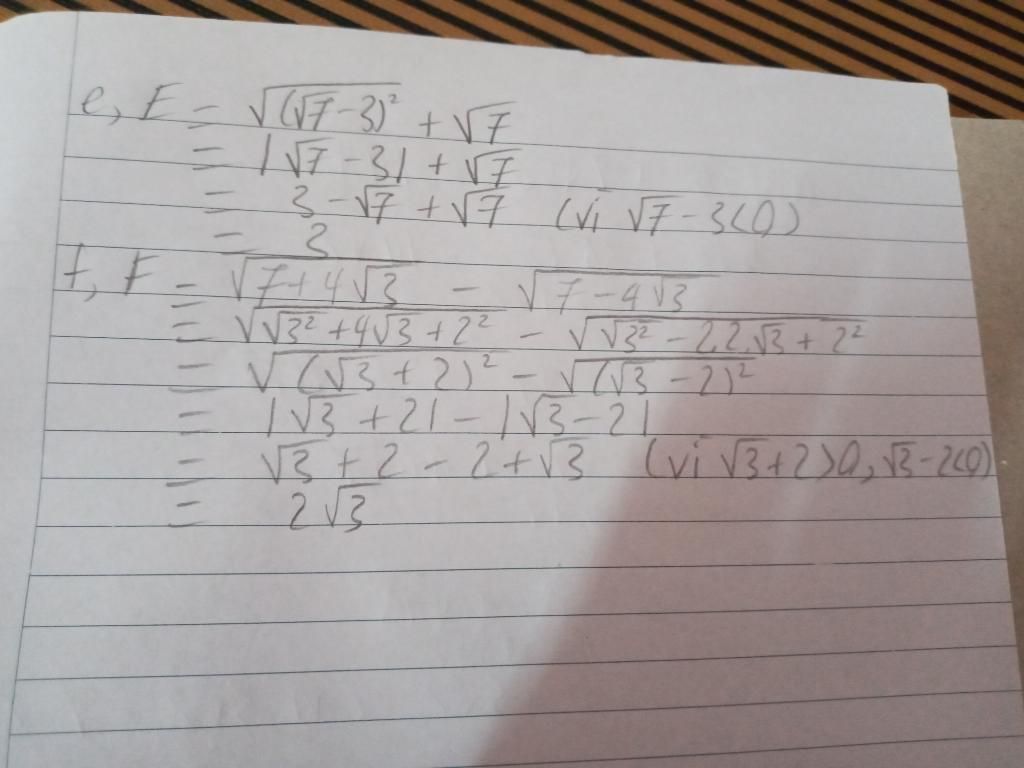 e, E = √(√7-3)² + √7
= |√7-3| + √7
= 3-√7+√7 (vì √7-3<0)
= 3
f, F = √7+4√3 - √7-4√3
= √√3²+4√3+2² - √√3²-2.2.√3+2²
= √(√3+2)² - √(√3-2)²
= |√3+2|-|√3-2|
= √3+2-2+√3 (vì √3+2>0, √3-2<0)
= 2√3